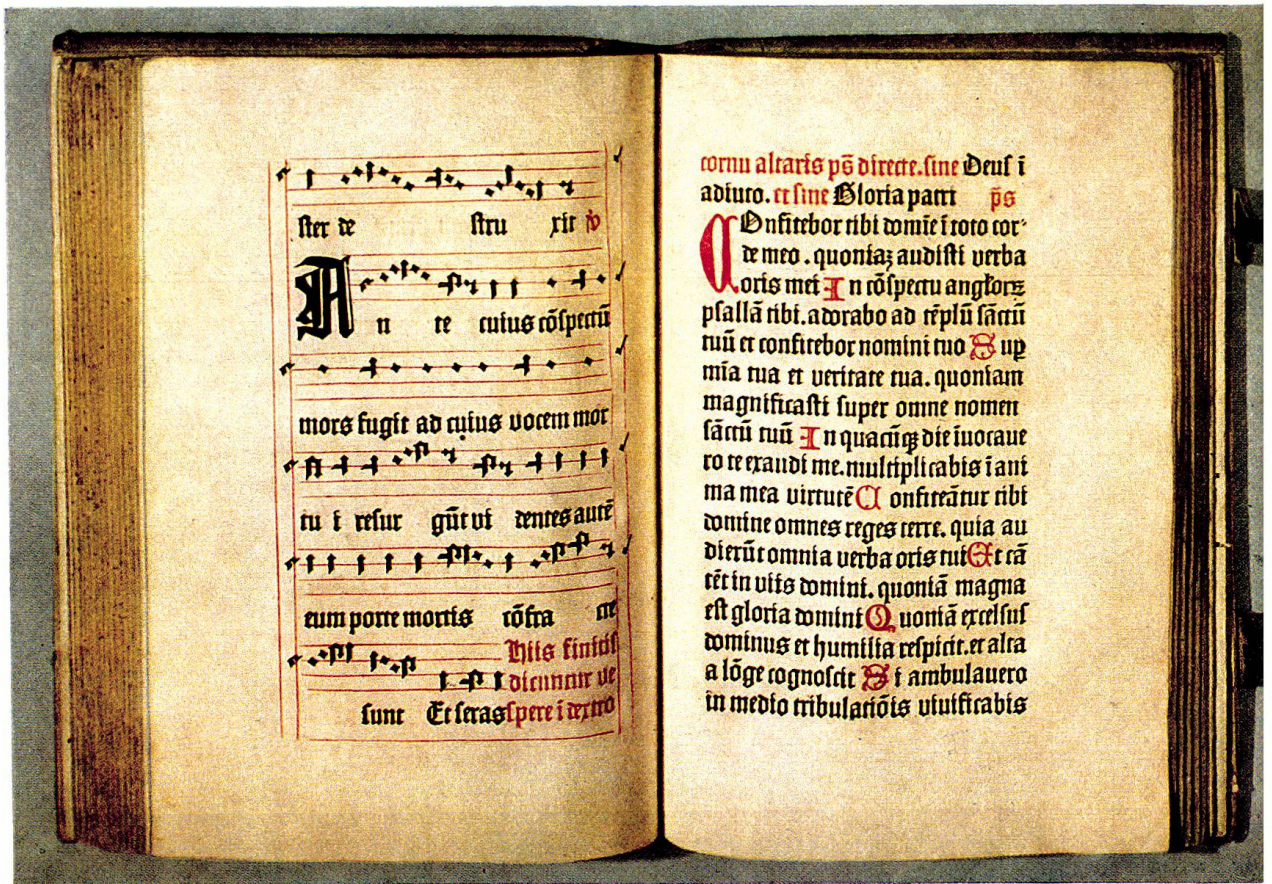 ster de stru xit ꝟ
An te cuius cōspectū
mors fugit ad cuius vocem mor
tu i resur gūt vi dentes autē
eum porte mortis cōfra cte
Hiis finitis
dicuntur ve
sunt Et seras spere ī dextro
cornu altaris ps̄ directe. sine Deus ī
adiuto. et sine Gloria patri p̄s
COnfitebor tibi domīe ī toto cor-
de meo. quoniaꝫ audisti verba
oris mei In cōspectu angłorꝝ
psallā tibi. adorabo ad tēplū sāctū
tuū et confitebor nomini tuo Suꝑ
mīa tua et veritate tua. quoniam
magnificasti super omne nomen
sāctū tuū In quacūqꝫ die īuocaue
ro te exaudi me. multiplicabis ī ani
ma mea virtutē Confiteātur tibi
domine omnes reges terre. quia au
dierūt omnia verba oris tui Et cā
tēt in viis domini. quoniā magna
est gloria domini Quoniā excelsus
dominus et humilia respicit. et alta
a lōge cognoscit Si ambulauero
in medio tribulatiōis viuificabis